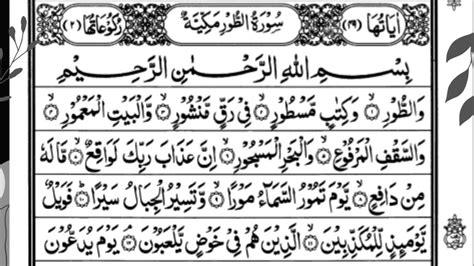 اٰیَاتُهَا (٤٩) سُوْرَةُ الطُّوْرِ مَکِّیَّةٌ رُکُوْعَاتُهَا (٢)
بِسْمِ اللهِ الرَّحْمٰنِ الرَّحِیْمِ
وَالطُّوْرِ ۙ١ وَکِتٰبٍ مَّسْطُوْرٍ ۙ٢ فِیْ رَقٍّ مَّنْشُوْرٍ ۙ٣ وَّالْبَیْتِ الْمَعْمُوْرِ ۙ٤
وَالسَّقْفِ الْمَرْفُوْعِ ۙ٥ وَالْبَحْرِ الْمَسْجُوْرِ ۙ٦ اِنَّ عَذَابَ رَبِّکَ لَوَاقِعٌ ۙ٧ مَّا لَهٗ
مِنْ دَافِعٍ ۙ٨ یَّوْمَ تَمُوْرُ السَّمَآءُ مَوْرًا ۙ٩ وَّتَسِیْرُ الْجِبَالُ سَیْرًا ؕ١٠ فَوَیْلٌ
یَّوْمَئِذٍ لِّلْمُکَذِّبِیْنَ ۙ١١ الَّذِیْنَ هُمْ فِیْ خَوْضٍ یَّلْعَبُوْنَ ۘ١٢ یَوْمَ یُدَعُّوْنَ